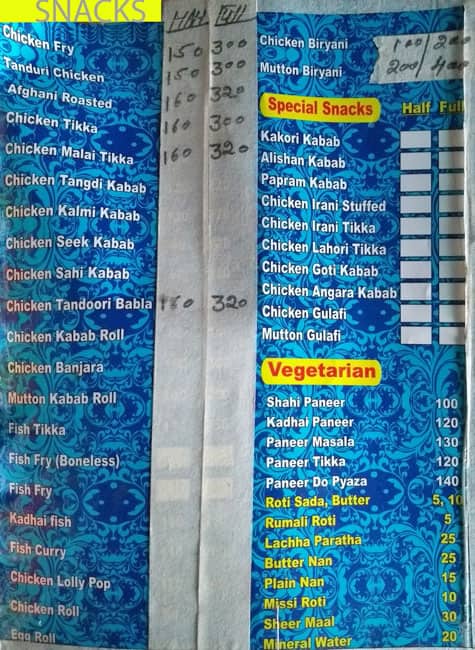 SNACKS
Half Full
Chicken Fry 150 300
Tanduri Chicken 150 300
Afghani Roasted 160 320
Chicken Tikka 160 300
Chicken Malai Tikka 160 320
Chicken Tangdi Kabab
Chicken Kalmi Kabab
Chicken Seek Kabab
Chicken Sahi Kabab
Chicken Tandoori Babla 160 320
Chicken Kabab Roll
Chicken Banjara
Mutton Kabab Roll
Fish Tikka
Fish Fry (Boneless)
Fish Fry
Kadhai fish
Fish Curry
Chicken Lolly Pop
Chicken Roll
Egg Roll
Chicken Biryani 100/200
Mutton Biryani 200/400
Special Snacks Half Full
Kakori Kabab
Alishan Kabab
Papram Kabab
Chicken Irani Stuffed
Chicken Irani Tikka
Chicken Lahori Tikka
Chicken Goti Kabab
Chicken Angara Kabab
Chicken Gulafi
Mutton Gulafi
Vegetarian
Shahi Paneer 100
Kadhai Paneer 120
Paneer Masala 130
Paneer Tikka 120
Paneer Do Pyaza 140
Roti Sada, Butter 5, 10
Rumali Roti 5
Lachha Paratha 25
Butter Nan 25
Plain Nan 15
Missi Roti 10
Sheer Maal 30
Mineral Water 20